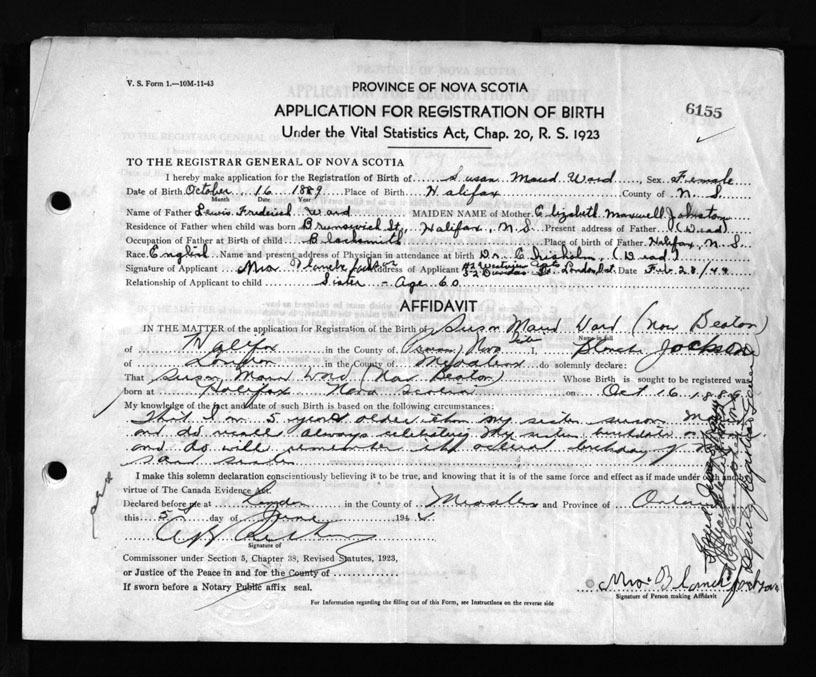 V. S. Form 1.—10M-11-43
PROVINCE OF NOVA SCOTIA
APPLICATION FOR REGISTRATION OF BIRTH
6155
Under the Vital Statistics Act, Chap. 20, R. S. 1923
TO THE REGISTRAR GENERAL OF NOVA SCOTIA
I hereby make application for the Registration of Birth of Susan Maud Ward, Sex Female
Date of Birth October 16 1889 Place of Birth Halifax County of N. S.
Month Date Year
Name of Father Lewis Frederick Ward MAIDEN NAME of Mother Elizabeth Maxwell Johnston
Residence of Father when child was born Brunswick St., Halifax, N. S. Present address of Father (Dead)
Occupation of Father at Birth of child Blacksmith Place of birth of Father Halifax, N. S.
Race English Name and present address of Physician in attendance at birth Dr. C. Chisholm, (Dead)
Signature of Applicant Mrs Blanche Jackson Address of Applicant Dundas St. London, Ont. Date Feb. 28/44
Relationship of Applicant to child Sister - Age 60
AFFIDAVIT
IN THE MATTER of the application for Registration of the Birth of Susan Maud Ward (Now Beaton)
Name in full
of Halifax in the County of Nova Scotia I, Blanche Jackson
of London in the County of Middlesex do solemnly declare:
That Susan Maud Ward (Now Beaton) Whose Birth is sought to be registered was
born at Halifax Nova Scotia on Oct. 16 1889
My knowledge of the fact and date of such Birth is based on the following circumstances:
That I am 5 years older than my sister Susan
and do recall always celebrating my sisters birthdate on
and do well remember the actual birthday of my
said sister
I make this solemn declaration conscientiously believing it to be true, and knowing that it is of the same force and effect as if made under oath and by
virtue of The Canada Evidence Act.
Declared before me at London in the County of Middlesex and Province of Ontario
this 5 day of June 194
Signature of
Commissioner under Section 5, Chapter 38, Revised Statutes, 1923,
or Justice of the Peace in and for the County of
If sworn before a Notary Public affix seal.
Mrs Blanche Jackson
Signature of Person making Affidavit
For Information regarding the filling out of this Form, see Instructions on the reverse side